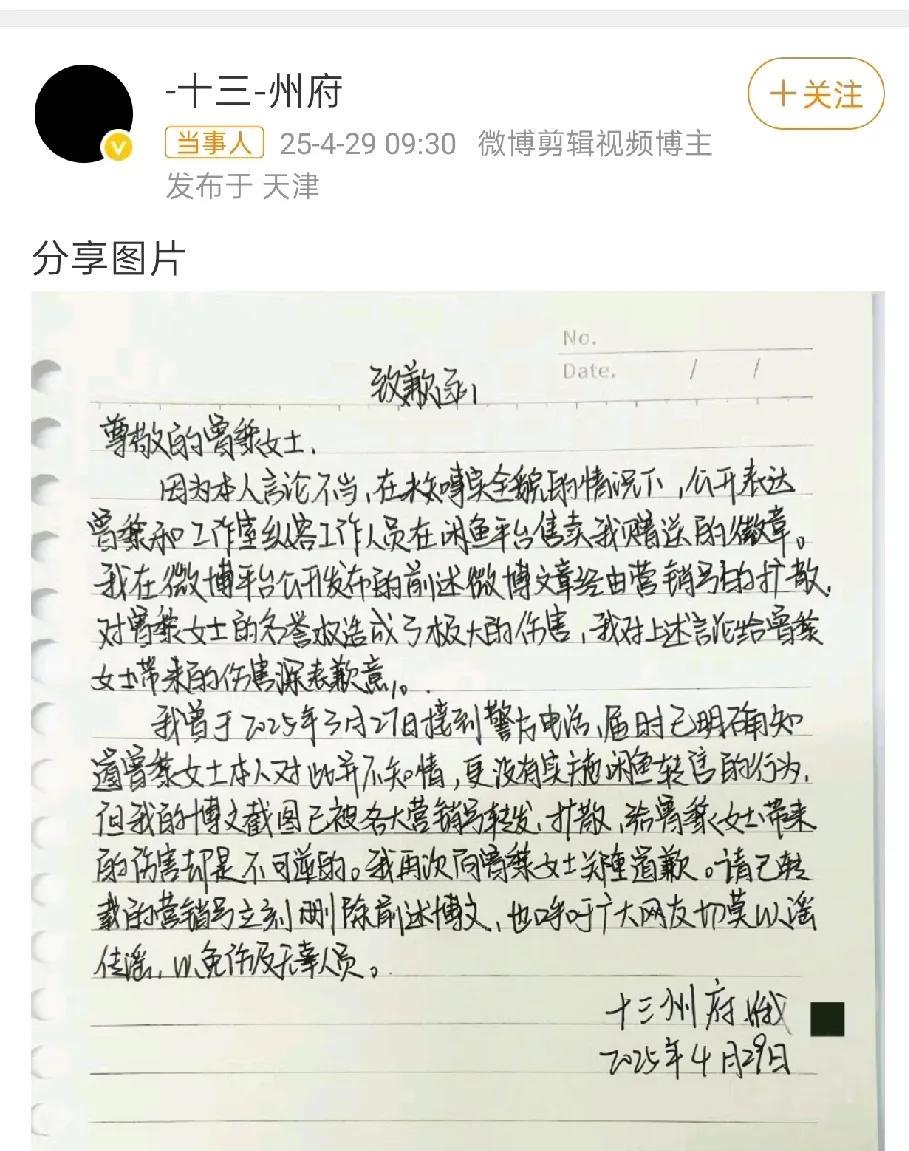 -十三-州府
十关注
当事人 25-4-29 09:30 微博剪辑视频博主
发布于 天津
分享图片
No.
Date. / /
致歉函
尊敬的曾黎女士.
因为本人言论不当,在未知事实全貌的情况下,公开表达
曾黎和工作室纵容工作人员在闲鱼平台售卖我赠送的徽章。
我在微博平台公开发布的前述微博文章经由营销号的扩散,
对曾黎女士的名誉权造成了极大的伤害,我对上述言论给曾黎
女士带来的伤害深表歉意。
我曾于2025年3月27日接到警方电话,届时已明确知
道曾黎女士本人对此并不知情,更没有实施闲鱼转售的行为,
但我的博文截图已被各大营销号转发、扩散,给曾黎女士带来
的伤害却是不可逆的。我再次向曾黎女士郑重道歉。请已转
载的营销号立刻删除前述博文,也呼吁广大网友切莫以谣
传谣,以免伤及无辜人员。
十三州府
2025年4月29日